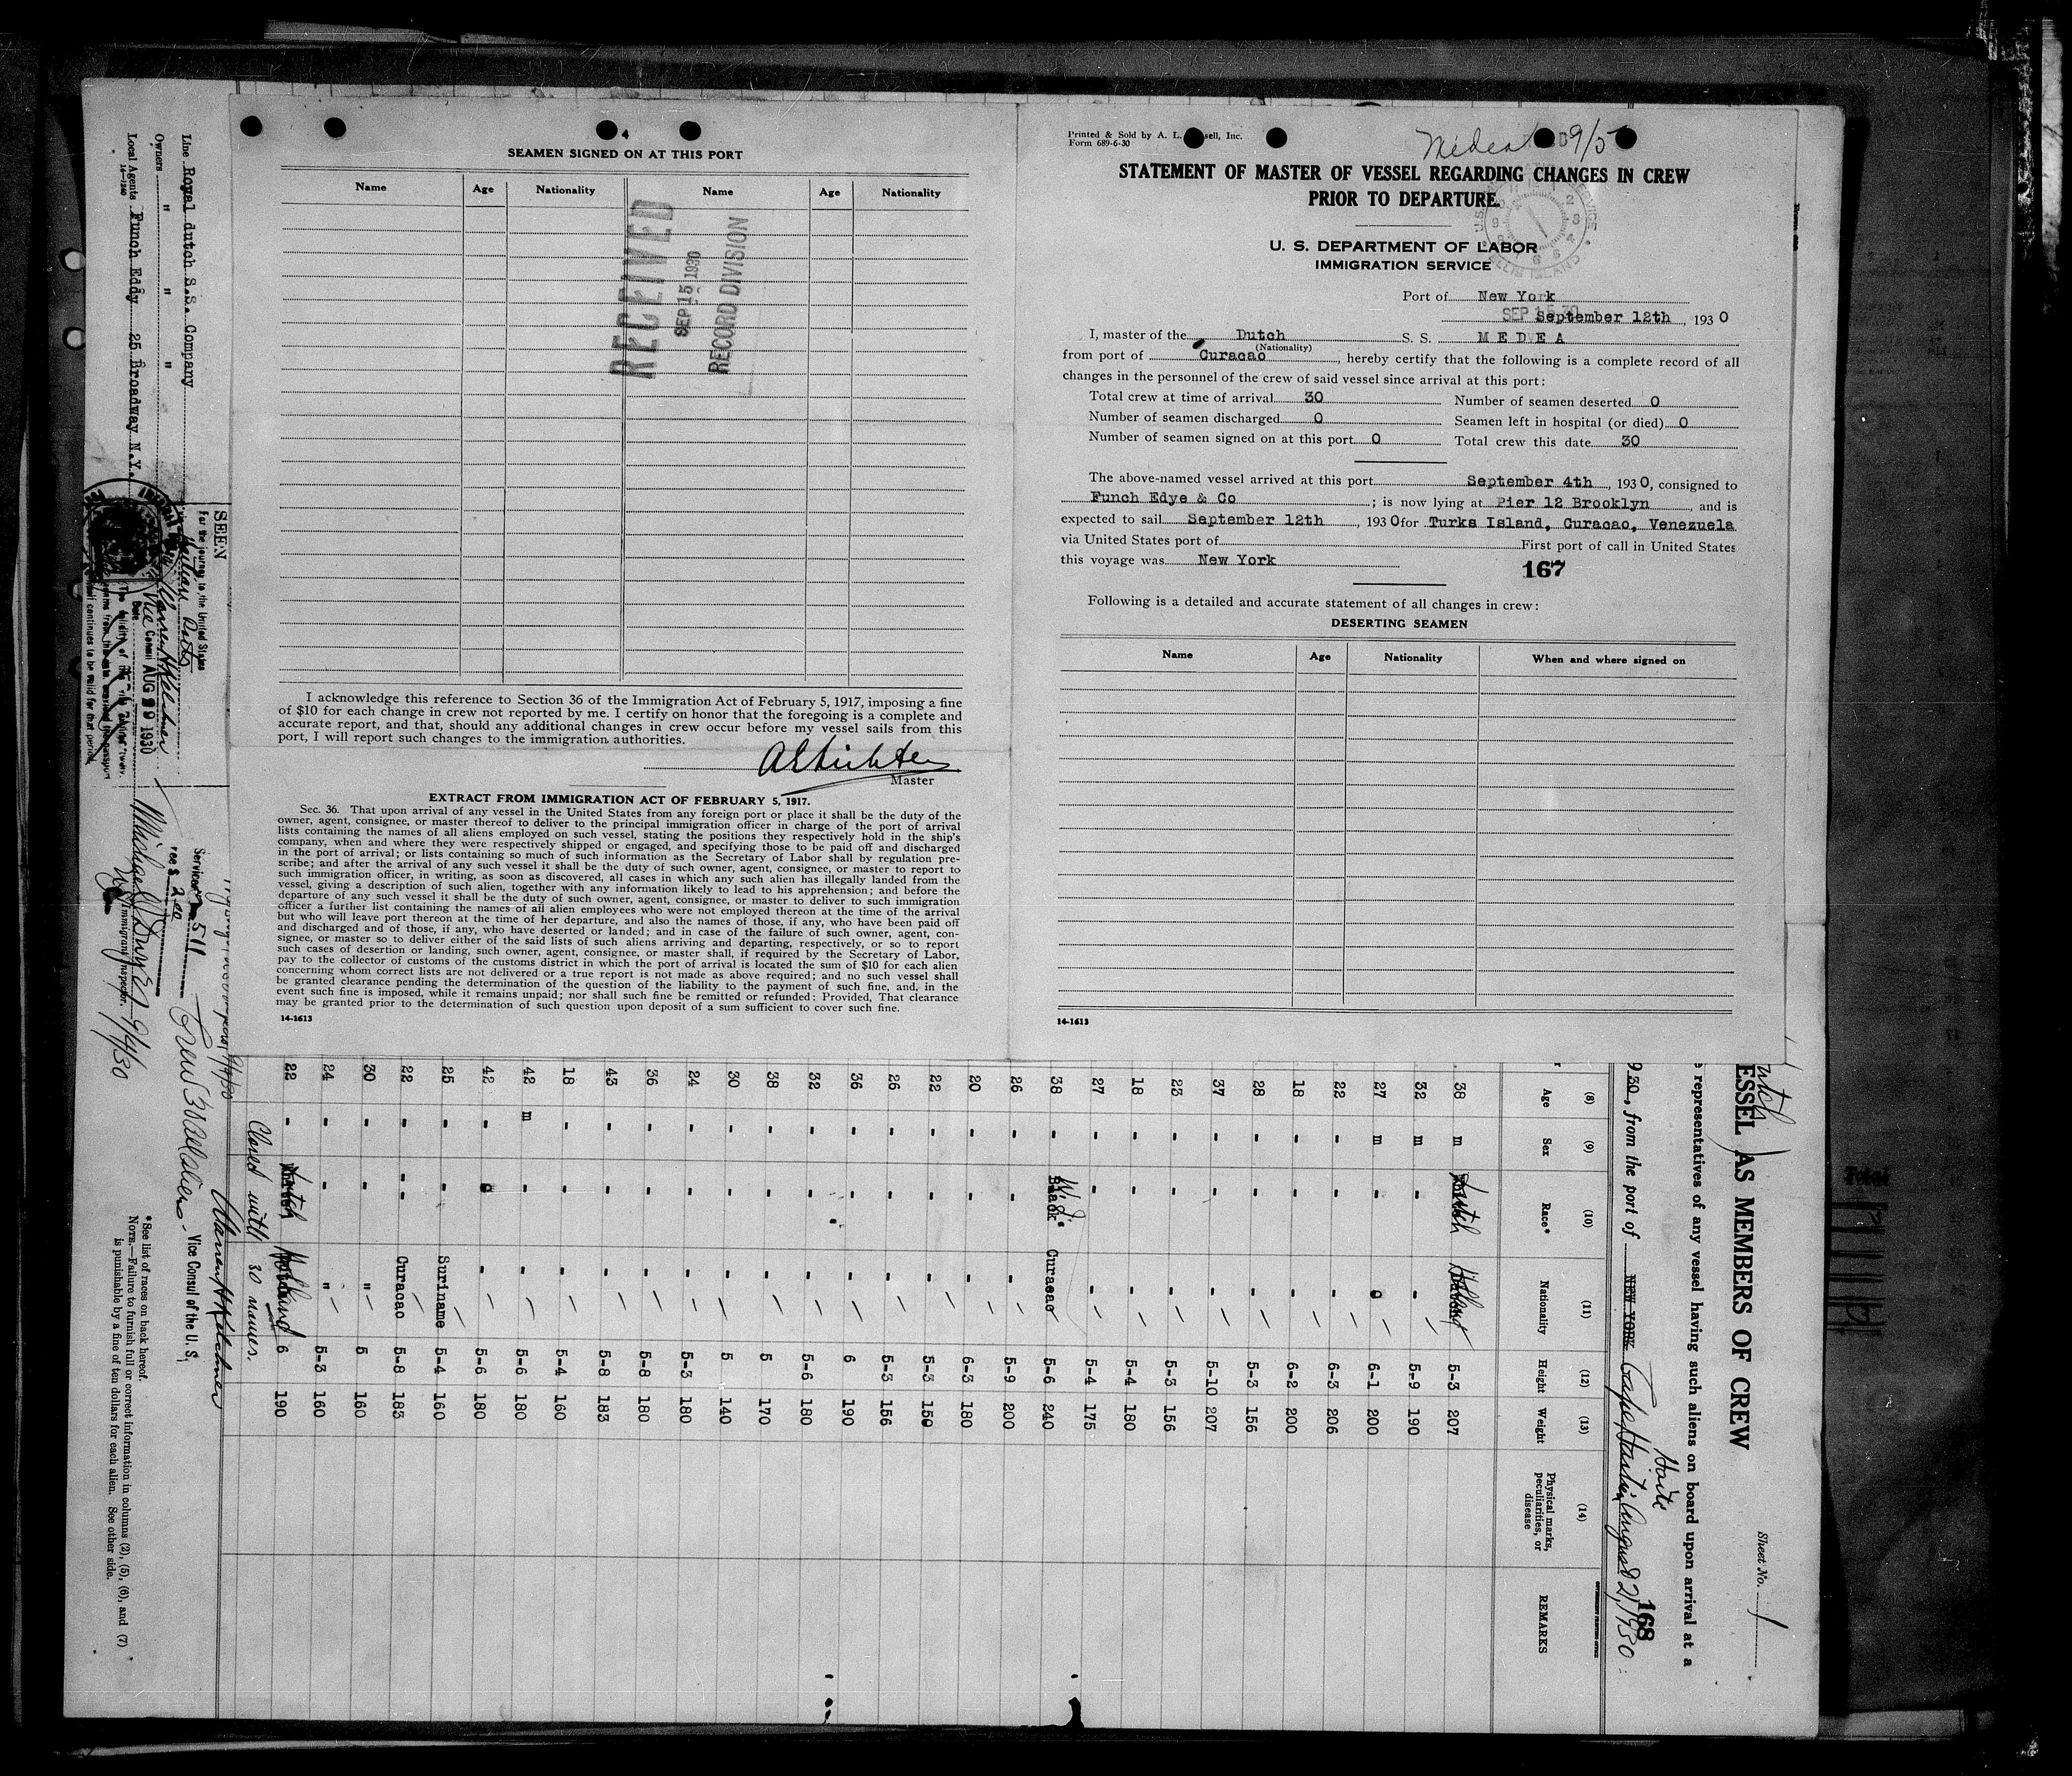 4
SEAMEN SIGNED ON AT THIS PORT
Name Age Nationality Name Age Nationality
RECEIVED
SEP 15 1930
RECORD DIVISION
I acknowledge this reference to Section 36 of the Immigration Act of February 5, 1917, imposing a fine
of $10 for each change in crew not reported by me. I certify on honor that the foregoing is a complete and
accurate report, and that, should any additional changes in crew occur before my vessel sails from this
port, I will report such changes to the immigration authorities.
Master
EXTRACT FROM IMMIGRATION ACT OF FEBRUARY 5, 1917.
Sec. 36. That upon arrival of any vessel in the United States from any foreign port or place it shall be the duty of the
owner, agent, consignee, or master thereof to deliver to the principal immigration officer in charge of the port of arrival
lists containing the names of all aliens employed on such vessel, stating the positions they respectively hold in the ship's
company, when and where they were respectively shipped or engaged, and specifying those to be paid off and discharged
in the port of arrival; or lists containing so much of such information as the Secretary of Labor shall by regulation pre-
scribe; and after the arrival of any such vessel it shall be the duty of such owner, agent, consignee, or master to report to
such immigration officer, in writing, as soon as discovered, all cases in which any such alien has illegally landed from the
vessel, giving a description of such alien, together with any information likely to lead to his apprehension; and before the
departure of any such vessel it shall be the duty of such owner, agent, consignee, or master to deliver to such immigration
officer a further list containing the names of all alien employees who were not employed thereon at the time of the arrival
but who will leave port thereon at the time of her departure, and also the names of those, if any, who have been paid off
and discharged and of those, if any, who have deserted or landed; and in case of the failure of such owner, agent, con-
signee, or master so to deliver either of the said lists of such aliens arriving and departing, respectively, or so to report
such cases of desertion or landing, such owner, agent, consignee, or master shall, if required by the Secretary of Labor,
pay to the collector of customs of the customs district in which the port of arrival is located the sum of $10 for each alien
concerning whom correct lists are not delivered or a true report is not made as above required; and no such vessel shall
be granted clearance pending the determination of the question of the liability to the payment of such fine, and, in the
event such fine is imposed, while it remains unpaid; nor shall such fine be remitted or refunded: Provided, That clearance
may be granted prior to the determination of such question upon deposit of a sum sufficient to cover such fine.
14-1613
Printed & Sold by A. L. sell, Inc.
Form 689-6-30
Medea 9/5
STATEMENT OF MASTER OF VESSEL REGARDING CHANGES IN CREW
PRIOR TO DEPARTURE.
U. S. DEPARTMENT OF LABOR
IMMIGRATION SERVICE
ELLIS ISLAND
Port of New York
September 12th, 1930
I, master of the Dutch S. S. MEDEA
(Nationality)
from port of Curacao, hereby certify that the following is a complete record of all
changes in the personnel of the crew of said vessel since arrival at this port:
Total crew at time of arrival 30 Number of seamen deserted 0
Number of seamen discharged 0 Seamen left in hospital (or died) 0
Number of seamen signed on at this port 0 Total crew this date 30
The above-named vessel arrived at this port September 4th, 1930, consigned to
Funch Edye & Co; is now lying at Pier 12 Brooklyn, and is
expected to sail September 12th, 1930 for Turks Island, Curacao, Venezuela
via United States port of First port of call in United States
this voyage was New York
167
Following is a detailed and accurate statement of all changes in crew:
DESERTING SEAMEN
Name Age Nationality When and where signed on
14-1613
Sheet No. 1
ESSEL AS MEMBERS OF CREW
representatives of any vessel having such aliens on board upon arrival at a
Haiti
930, from the port of NEW YORK Cape Haitien August 29, 1930
168
(8) (9) (10) (11) (12) (13) (14)
Age Sex Race* Nationality Height Weight Physical marks, peculiarities, or disease REMARKS
38 m Dutch Holland 5-3 207
32 m " " 5-9 190
27 m " " 6-1 200
22 " " " 6-3 206
18 " " " 6-2 200
28 " " " 5-3 156
37 " " " 5-10 207
23 " " " 5-3 156
18 " " " 5-4 180
27 " " " 5-4 175
38 " Black W.I. Curacao 5-6 240
26 " " " 5-9 200
20 " " " 6-3 180
22 " " " 5-3 150
26 " " " 5-3 156
36 " " " 6 190
32 " " " 5-6 180
38 " " " 5 170
30 " " " 5 140
24 " " " 5-3 180
36 " " " 5-8 180
43 " " " 5-8 183
18 " " " 5-4 160
42 m " " 5-6 180
42 " " " 5-6 180
25 " " Suriname 5-4 160
22 " " Curacao 5-8 183
30 " " " 5 160
24 " " " 5-3 160
22 " Dutch Holland 6 190
Closed with 30 names.
Vice Consul of the U. S.
*See list of races on back hereof.
NOTE.—Failure to furnish full or correct information in columns (2), (5), (6), and (7)
is punishable by a fine of ten dollars for each alien. See other side.
Line Royal dutch S.S. Company
Owners " " "
Local Agents Funch Eddy 25 Broadway N.Y.
14-1240
SEEN
For the journey to the United States
Vice Consul
Date AUG 29 1930
Service No 511
Fee $ 2.00
Immigrant Inspector.
9/4/30
Total